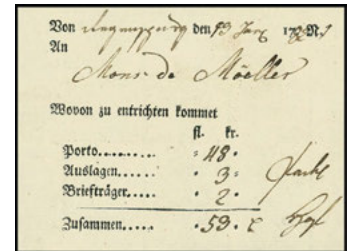 Von Regenspurg den 13 Janz 17
An
Mons. de Möeller
Wovon zu entrichten kommet
fl. kr.
Porto....... : 48 •
Auslagen..... • 3 :
Briefträger.... • 2 •
Zusammen..... • 53 •